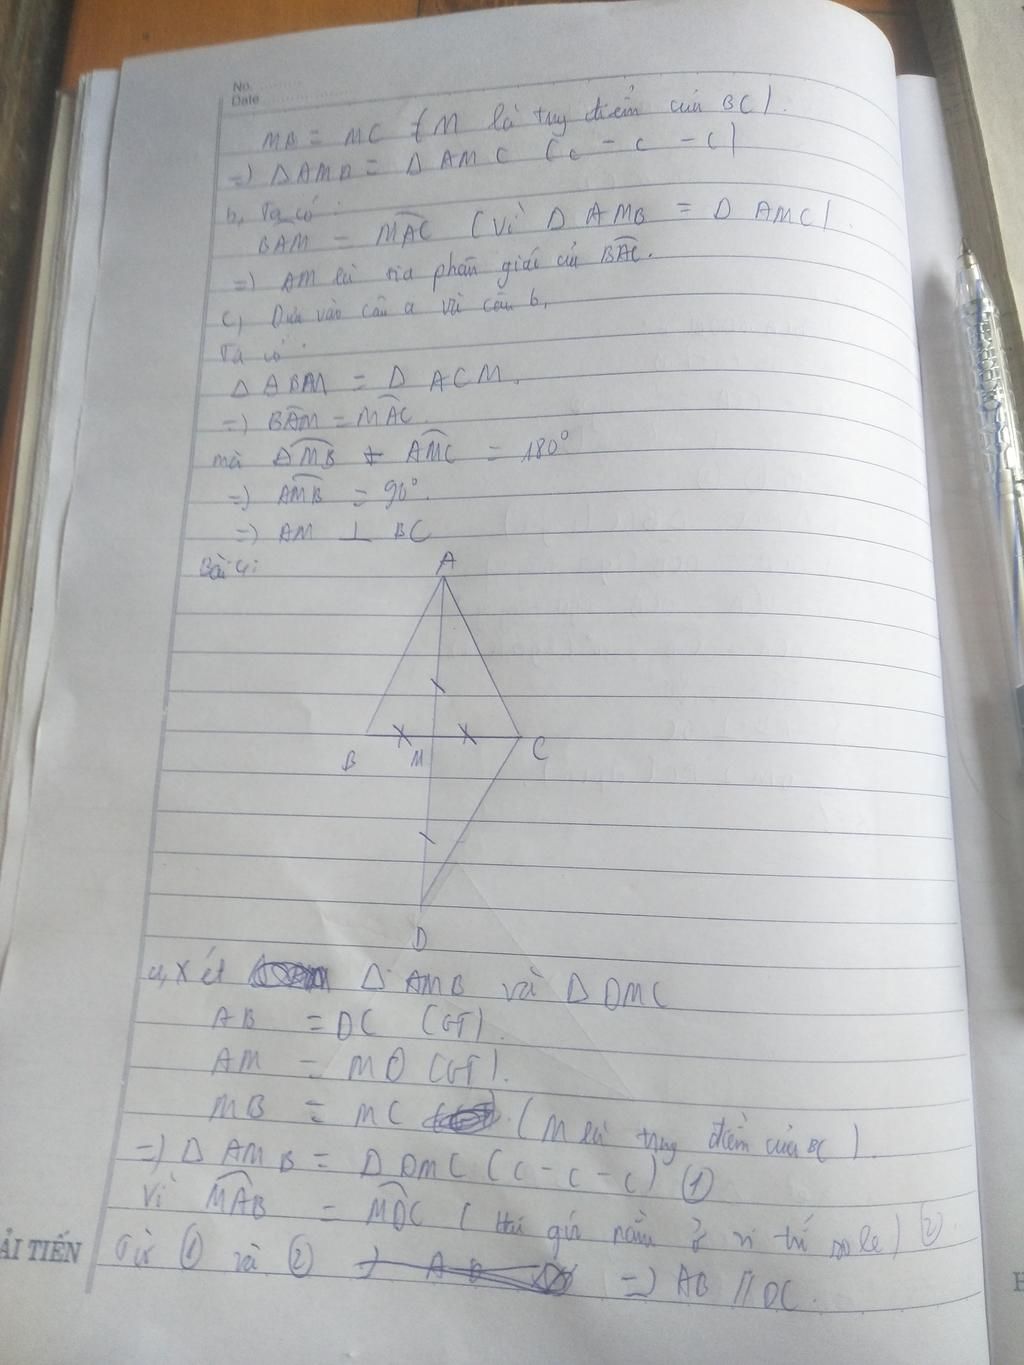 No.
Date
MB = MC (M là trug điểm của BC).
=) Δ AMB = Δ AMC (c - c - c)
b, Ta có :
BAM = MAC (Vì Δ AMB = Δ AMC).
=) AM là tia phân giác của BAC.
c, Dựa vào câu a và câu b,
Ta có :
Δ ABM = Δ ACM.
=) BAM = MAC.
mà AMB + AMC = 180°
=) AMB = 90°.
=) AM ⊥ BC
Bài 4:
A
B M C
D
a, Xét Δ AMB và Δ DMC
AB = DC (GT).
AM = MD (GT).
MB = MC (M là trug điểm của BC).
=) Δ AMB = Δ DMC (c - c - c) (1)
Vì MAB = MDC (Hai góc nằm ở vị trí so le) (2).
Từ (1) và (2) =) AB // DC.
ẢI TIẾN